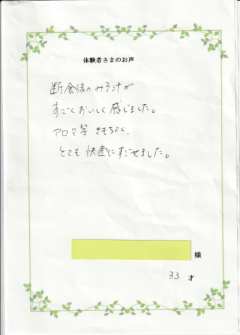 体験者さまのお声
断食後のみそ汁が
すごくおいしく感じました。
アロマ等きもちよく、
とても快適にすごせました。
様
33才